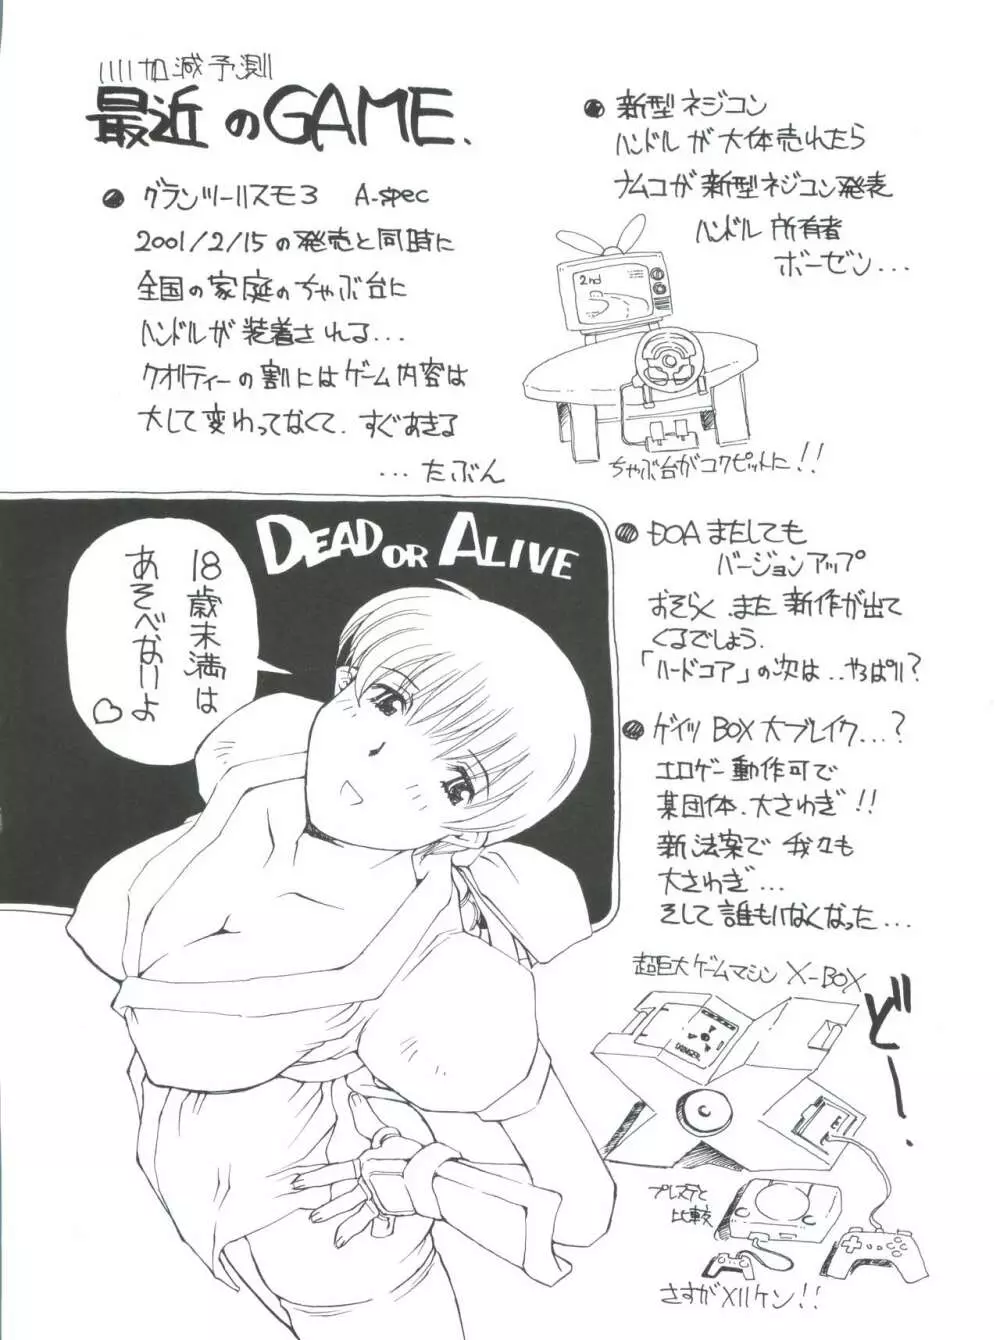 いい加減予測
最近のGAME.
● グランツーリスモ3 A-spec
2001/2/15の発売と同時に
全国の家庭のちゃぶ台に
ハンドルが装着される...
クオリティーの割にはゲーム内容は
大して変わってなくて.すぐあきる
...たぶん
● 新型ネジコン
ハンドルが大体売れたら
ナムコが新型ネジコン発表
ハンドル所有者
ボーゼン...
2nd
ちゃぶ台がコクピットに!!
DEAD OR ALIVE
18歳末満は
あそべないよ♡
● DOAまたしても
バージョンアップ
おそらく.また新作が出て
くるでしょう.
「ハードコア」の次は..やっぱり?
● ゲイツBOX大ブレイク...?
エロゲー動作可で
某団体.大さわぎ!!
新法案で我々も
大さわぎ...
そして誰もいなくなった...
超巨大ゲームマシンX-BOX
どーー.
DANGER
プレステと
比較
さすがメリケン!!